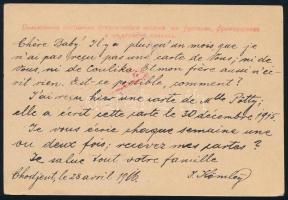 Chère Baby! Il y a plus qu'un mois que je
n'ai pas reçu pas une carte de vous; ni de
vous, ni de Coulike. Et mon fière aussi n'éc-
rit rien. Est-ce possible, comment?
J'ai reçu hier une carte de Mlle Potty;
elle a écrit cette carte le 30 décembre 1915.
Je vous écrie chaque semaine une
ou deux fois; recevez mes cartes?
Je salue tout votre famille
Chodjent, le 28 avril 1916.